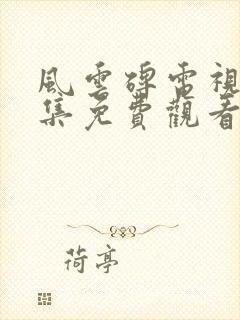 風雲碑電視
集免費觀看
荷亭